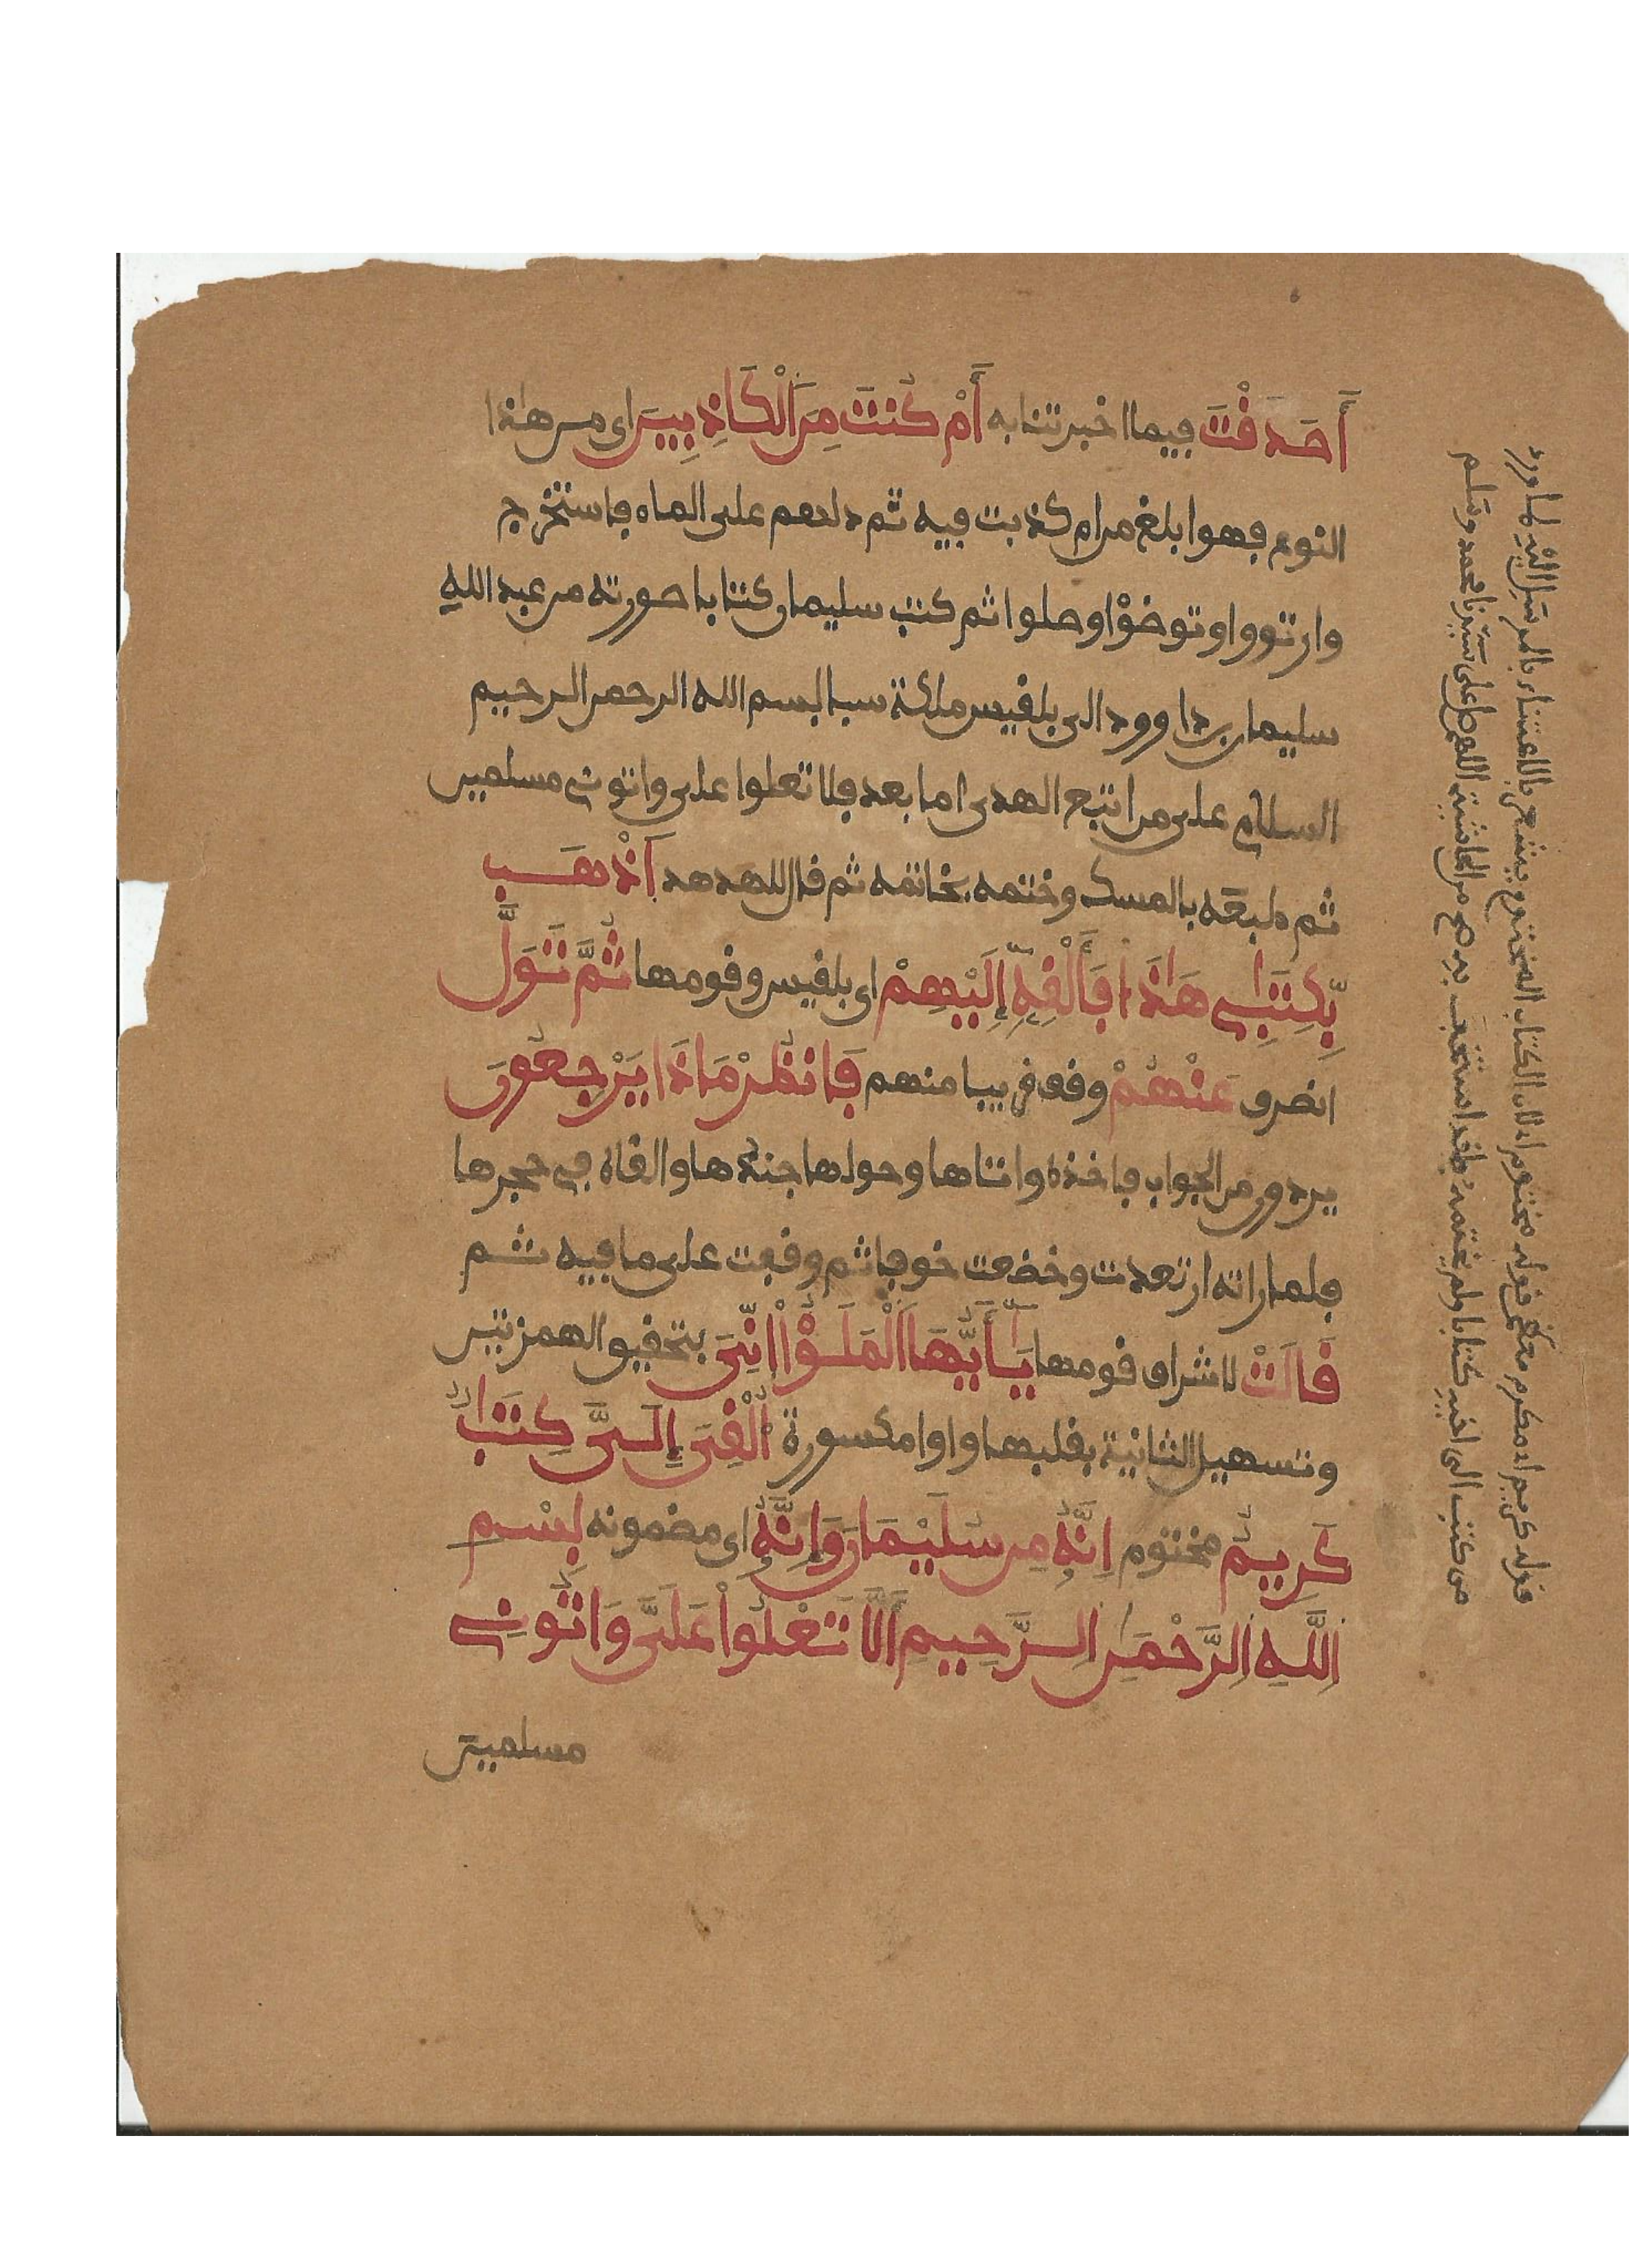 أَصَدَقْتَ فيما اخبرتنا به أَمْ كُنتَ مِنَ اَلْكَاذِبِينَ اى من هاذا
النوع فهو ابلغ من ام كذبت فيه ثم دلهم على الماء فاستخرج
وارتووا وتوضؤا وصلوا ثم كتب سليمان كتابا صورته من عبد اللهِ
سليمان بن داوود الى بلقيس ملكة سبا بسم الله الرحمن الرحيم
السلام على من اتبع الهدى اما بعد فلا تعلوا على واتونى مسلمين
ثم طبعه بالمسك وختمه بخاتمه ثم قال للهدهد اَذْهَب
بِّكِتَٰبِى هَٰذَا فَأَلْقِهِۦٓ إِلَيْهِمْ اى بلقيس وقومها ثُمَّ تَوَلَّ
انصرف عَنْهُمْ وقف قريبا منهم فَانظُرْ مَاذَا يَرْجِعُونَ
يردون من الجواب فاخذه واتاها وحولها جندها والقاه فى حجرها
فلما راته ارتعدت وخضعت خوفا ثم وقفت على ما فيه ثم
قَالَتْ لاشراف قومها يَٰأَيُّهَا اَلْمَلَؤُاْ اِنِّىَ بتحقيق الهمزتين
وتسهيل الثانية بقلبها واوا مكسورة أُلْقِىَ إِلَىَّ كِتَٰبٌ
كَرِيمٌ مختوم اِنَّهُۥ مِن سُلَيْمَٰنَ وَإِنَّهُۥ اى مضمونه بِسْمِ
اِللَّهِ اِلرَّحْمَٰنِ اِلرَّحِيمِ أَلَّا تَعْلُواْ عَلَىَّ وَاتُونِى
مسلمين
قوله كريم اى مكرم معظم قوله مختوم اى لان الكتاب المختوم يشعر بالاعتناء بالمرسَل اليْه لما ورد
من كتب الى اخيه كتابا ولم يختمه فقد استخف به صح من الحاشية اللهم صل على سَيّدنا محمد وسَلم